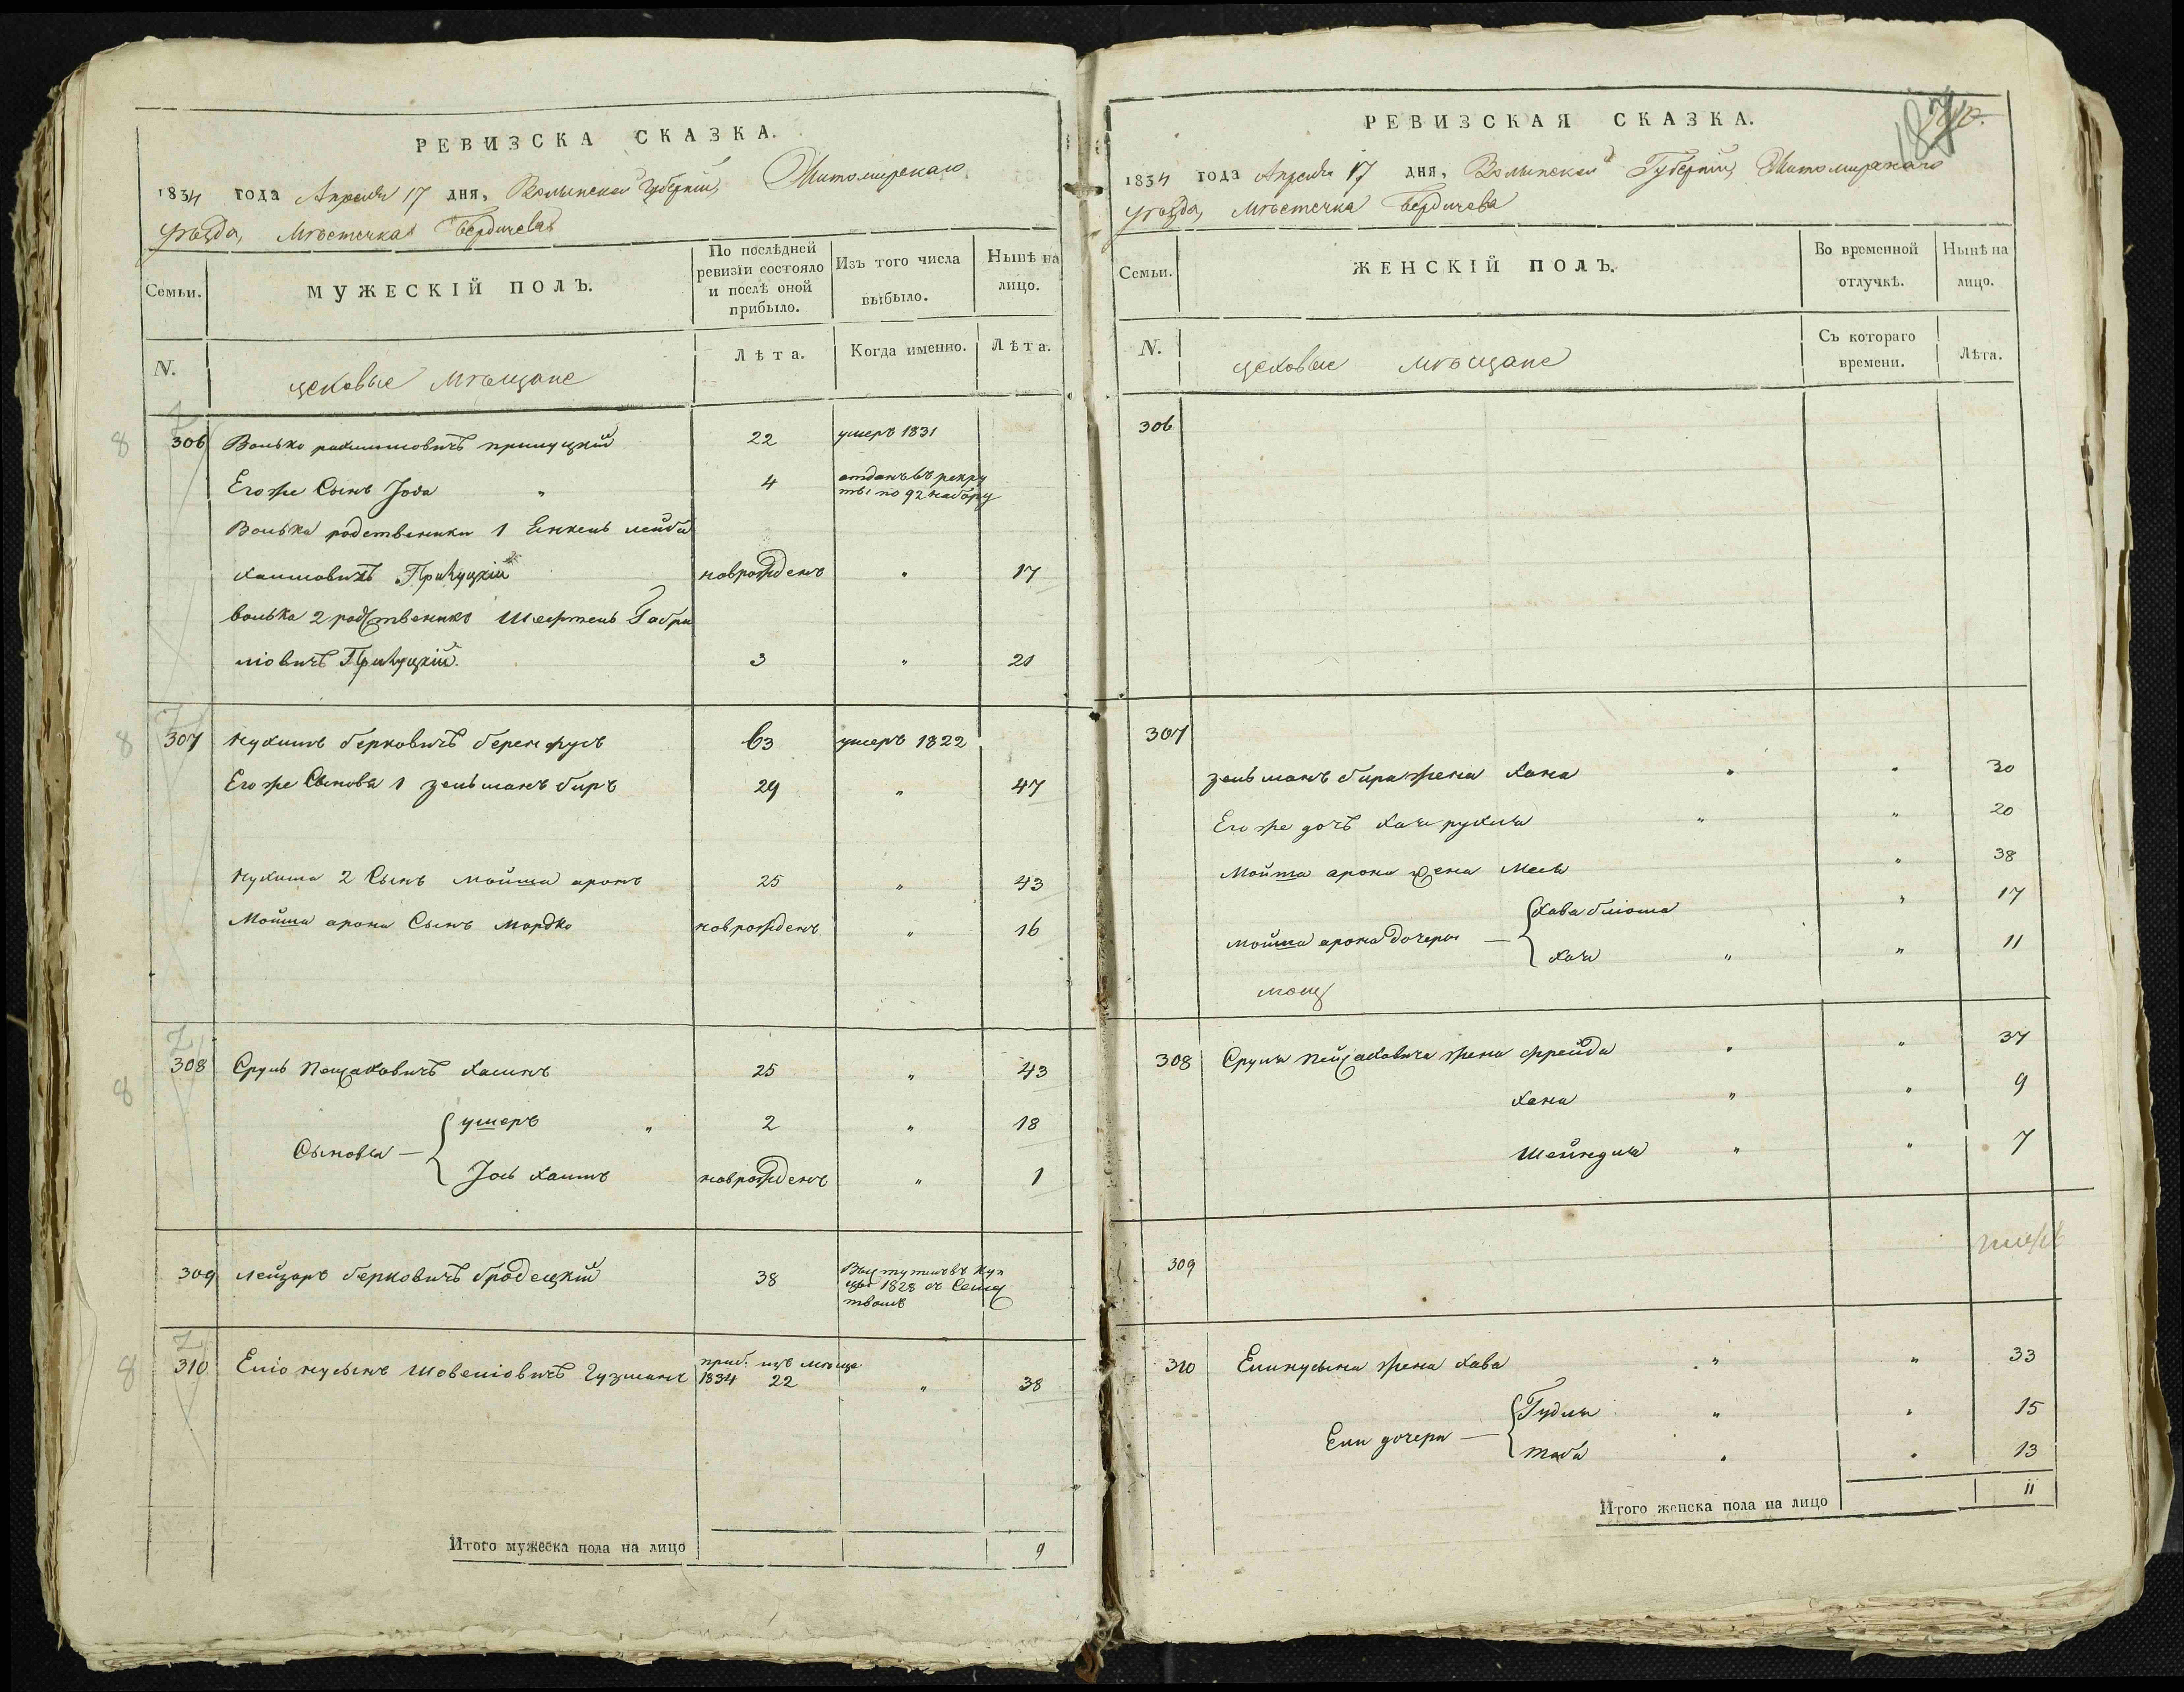 РЕВИЗСКА СКАЗКА.
1834 года Апреля 17 дня, Волынской Губернии, Житомирскаго
уѣзда, Мѣстечка Бердичева
Семьи.
МУЖЕСКІЙ ПОЛЪ.
По послѣдней
ревизіи состояло
и послѣ оной
прибыло.
Изъ того числа
выбыло.
Нынѣ на
лицо.
N.
цеховые мѣщане
Лѣта.
Когда именно.
Лѣта.
306 Волько рахмиловичъ прилуцкій 22 умеръ 1831
Его же Сынъ Іова " 4 отданъ въ рекру
ты по 92 набору
Волька родственики 1 Енкель лейба
хаимовичъ Прилуцкій новрожденъ " 17
волька 2 родственикъ Шефтель Габри
ліовичъ Прилуцкій. 3 " 21
307 Нухимъ берковичъ беренфусъ 63 умеръ 1822
Его же Сыновья 1 зельманъ биръ 29 " 47
Нухима 2 Сынъ мойша аронъ 25 " 43
Мойша арона Сынъ мордко новрожденъ " 16
308 Сруль Пейсаховичъ хасинъ 25 " 43
Сыновья —
ушеръ " 2 " 18
Іось хаимъ новрожденъ " 1
309 лейзоръ берковичъ бродецкій 38 Выступилъ въ куп
цы 1828 съ Семей
твомъ
310 Еліо нусынъ Шовеліовичъ Гузманъ
приб. изъ мѣща
1834 22 " 38
Итого мужеска пола на лицо 9
РЕВИЗСКАЯ СКАЗКА.
1834 года Апреля 17 дня, Волынской Губерніи, Житомирскаго
уѣзда, мѣстечка Бердичева
Семьи.
ЖЕНСКІЙ ПОЛЪ.
Во временной
отлучкѣ.
Нынѣ на
лицо.
N.
цеховые мѣщане
Съ котораго
времени.
Лѣта.
306
307
зельманъ бира жена хана " " 30
Его же дочь хая рухля " " 20
Мойша арона жена Меля " 38
мойша арона дочери —
хава блюма " 17
хая " " 11
308 Сруля пейсаховича жена фрейда " " 37
хана " " 9
Шейндля " " 7
309
310 Елинусына жена хава " " 33
Ели дочери —
Гудля " " 15
таба " " 13
Итого женска пола на лицо 11